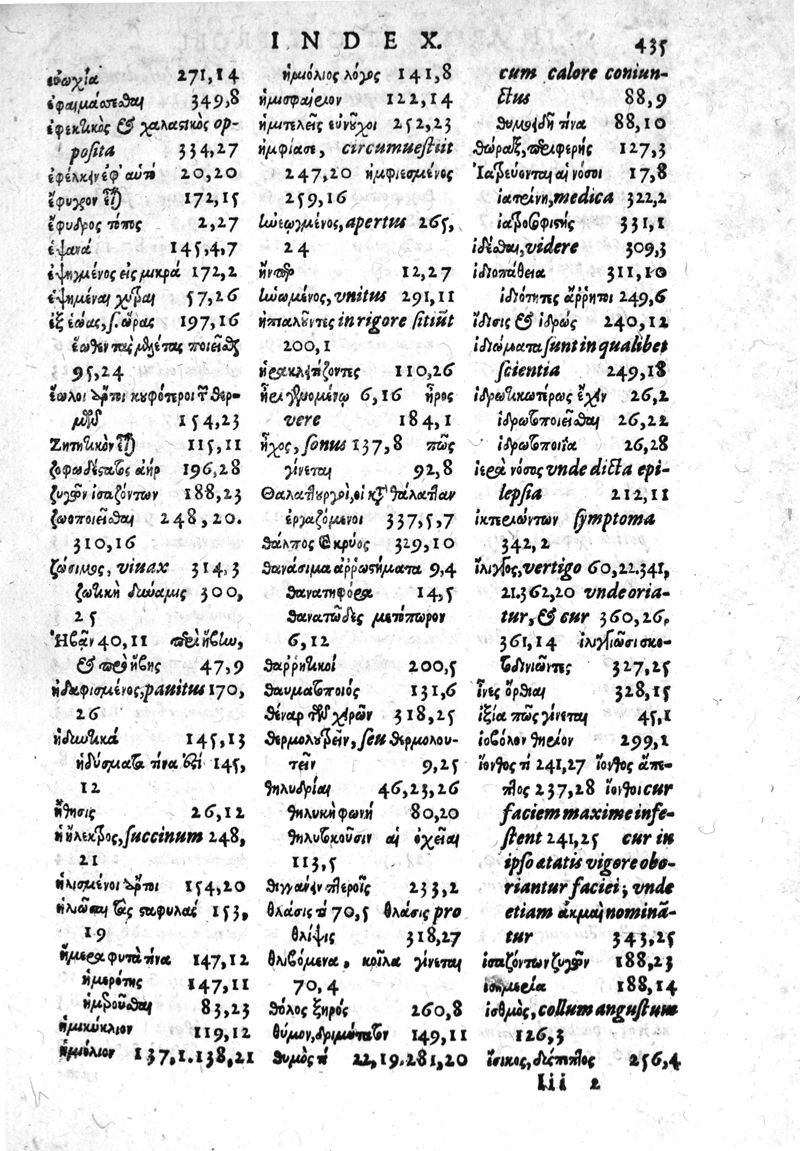 INDEX. 435
εὐωχία 271,14
ἐφαιμάσσεσθαι 349,8
ἐφεκτικὸς & χαλαστικὸς op-
posita 334,27
ἐφέλκειν ἐφ' αὑτὸ 20,20
ἔφυχρον 172,15
ἔφυδρος τόπος 2,27
ἑψανά 145,4,7
ἐψηγμένος εἰς μικρά 172,2
ἑψημέναι χύτραι 57,26
ἐξ ἑώας, s. ὥρας 197,16
ἕωθεν 
95,24
ἕωλοι ἄρτοι κυφότεροι τῶν θερ-
μῶν 154,23
Ζητητικὸν εἶναι 115,11
ζοφωδέστατος ἀὴρ 196,28
ζυγῶν ἰσαζόντων 188,23
ζωοποιεῖσθαι 248,20.
310,16
ζώσιμος, vinax 314,3
ζωτικὴ δύναμις 300,
25
Ἡβᾶν 40,11 περὶ ἥβην,
& πρὸ ἥβης 47,9
ἠδαφισμένος, pauitus 170,
26
ἡδυντικά 145,13
ἡδύσματα τίνα ἐστὶ 145,
12
ἤθησις 26,12
ἡ ἤλεκτρος, succinum 248,
21
ἡλισμένοι ἄρτοι 154,20
ἡλιῶσαι τὰς σταφυλάς 153,
19
ἥμερα φυτὰ τίνα 147,12
ἡμερότης 147,11
ἡμεροῦσθαι 83,23
ἡμικύκλιον 119,12
ἡμιόλιον 137,1.138,21
ἡμιόλιος λόγος 141,8
ἡμισφαίριον 122,14
ἡμιτελεῖς εὐνοῦχοι 252,23
ἠμφίασε, circumuestiit
247,20 ἠμφιεσμένος
259,16
ἠνεῳγμένος, apertus 265,
24
ἤντερ 12,27
ἡνωμένος, vnitus 291,11
ἠπιαλοῦντες in rigore sitiūt
200,1
ἡρακλεΐζοντες 110,26
ἠρεθισμένῳ 6,16 ἦρος
vere 184,1
ἦχος, sonus 137,8 πῶς
γίνεται 92,8
Θαλαττουργοὶ, οἱ κατὰ θάλατταν
ἐργαζόμενοι 337,5,7
θάλπος & κρύος 329,10
θανάσιμα ἀρρωστήματα 9,4
θανατηφόρα 14,5
θανατῶδες μετόπωρον
6,12
θαρρητικοί 200,5
θαυμαστοποιός 131,6
θέναρ τῶν χειρῶν 318,25
θερμολουτρεῖν, seu θερμολου-
τεῖν 9,25
θηλυδρίαι 46,23,26
θηλυκὴ φωνή 80,20
θηλυτοκοῦσιν αἱ ὀχεῖαι
113,5
θιγγάνειν πτεροῖς 233,2
θλάσις τί 70,5 θλάσις pro
θλίψις 318,27
θλιβόμενα, κοῖλα γίνεται
70,4
θόλος ξηρός 260,8
θύμον, δριμύτατον 149,11
θυμὸς τί 22,19.281,20
cum calore coniun-
ctus 88,9
θυμοειδῆ τίνα 88,10
θώραξ, περιφερής 127,3
Ἰατρεύονται αἱ νόσοι 17,8
ἰατρίνη, medica 322,2
ἰατροσοφιστής 331,1
ἰδέσθαι, videre 309,3
ἰδιοπάθεια 311,10
ἰδιότητες ἄρρητοι 249,6
ἴδισις & ἱδρώς 240,12
ἰδιώματα sunt in qualibet
scientia 249,18
ἱδρωτικωτέρως ἔχειν 26,2
ἱδρωτοποιεῖσθαι 26,22
ἱδρωτοποιΐα 26,28
ἱερὰ νόσος vnde dicta epi-
lepsia 212,11
ἰκτεριώντων symptoma
342,2
ἴλιγγος, vertigo 60,22.341,
21.362,20 vnde oria-
tur, & cur 360,26.
361,14 ἰλιγγιῶσι σκο-
τοδινιῶντες 327,25
ἶνες ὄρθιαι 328,15
ἰξία πῶς γίνεται 45,1
ἰοβόλον θηρίον 299,1
ἴονθος τί 241,27 ἴονθος ἄπε-
πτος 237,28 ἴονθοι cur
faciem maxime infe-
stent 241,25 cur in
ipso ætatis vigore obo-
riantur faciei; vnde
etiam ἀκμαὶ nominā-
tur 343,25
ἰσαζόντων ζυγῶν 188,23
ἰσημερία 188,14
ἰσθμὸς, collum angustum
126,3
ἴσικος, δίεπτος 256,4
Iii 2